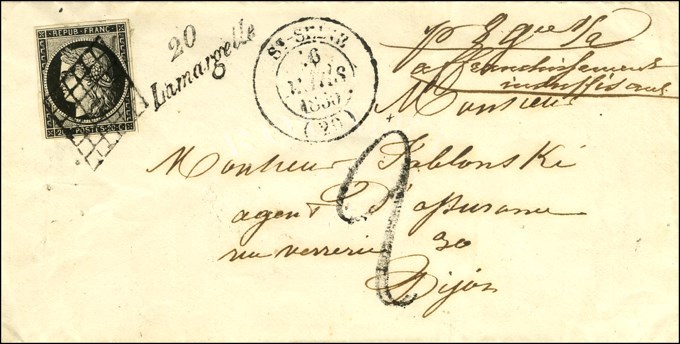 REPUB. FRANC.
20 POSTES 20 C
20
Lamargelle
ST-SEINE
6
MARS
1850
(20)
p
affranchissement
insuffisant
Monsieur
Monsieur Jablonski
agent D'assurance
rue verrerie 30
Dijon
2